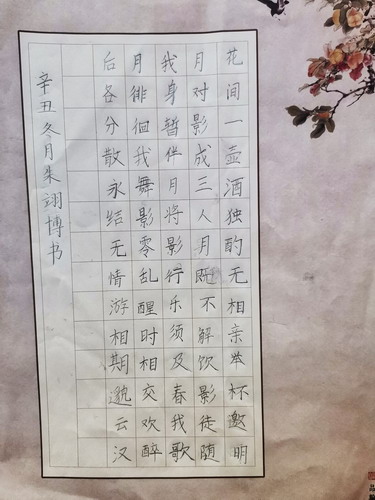 花间一壶酒独酌无相亲举杯邀明
月对影成三人月既不解饮影徒随
我身暂伴月将影行乐须及春我歌
月徘徊我舞影零乱醒时相交欢醉
后各分散永结无情游相期邈云汉
辛丑冬月朱翊博书